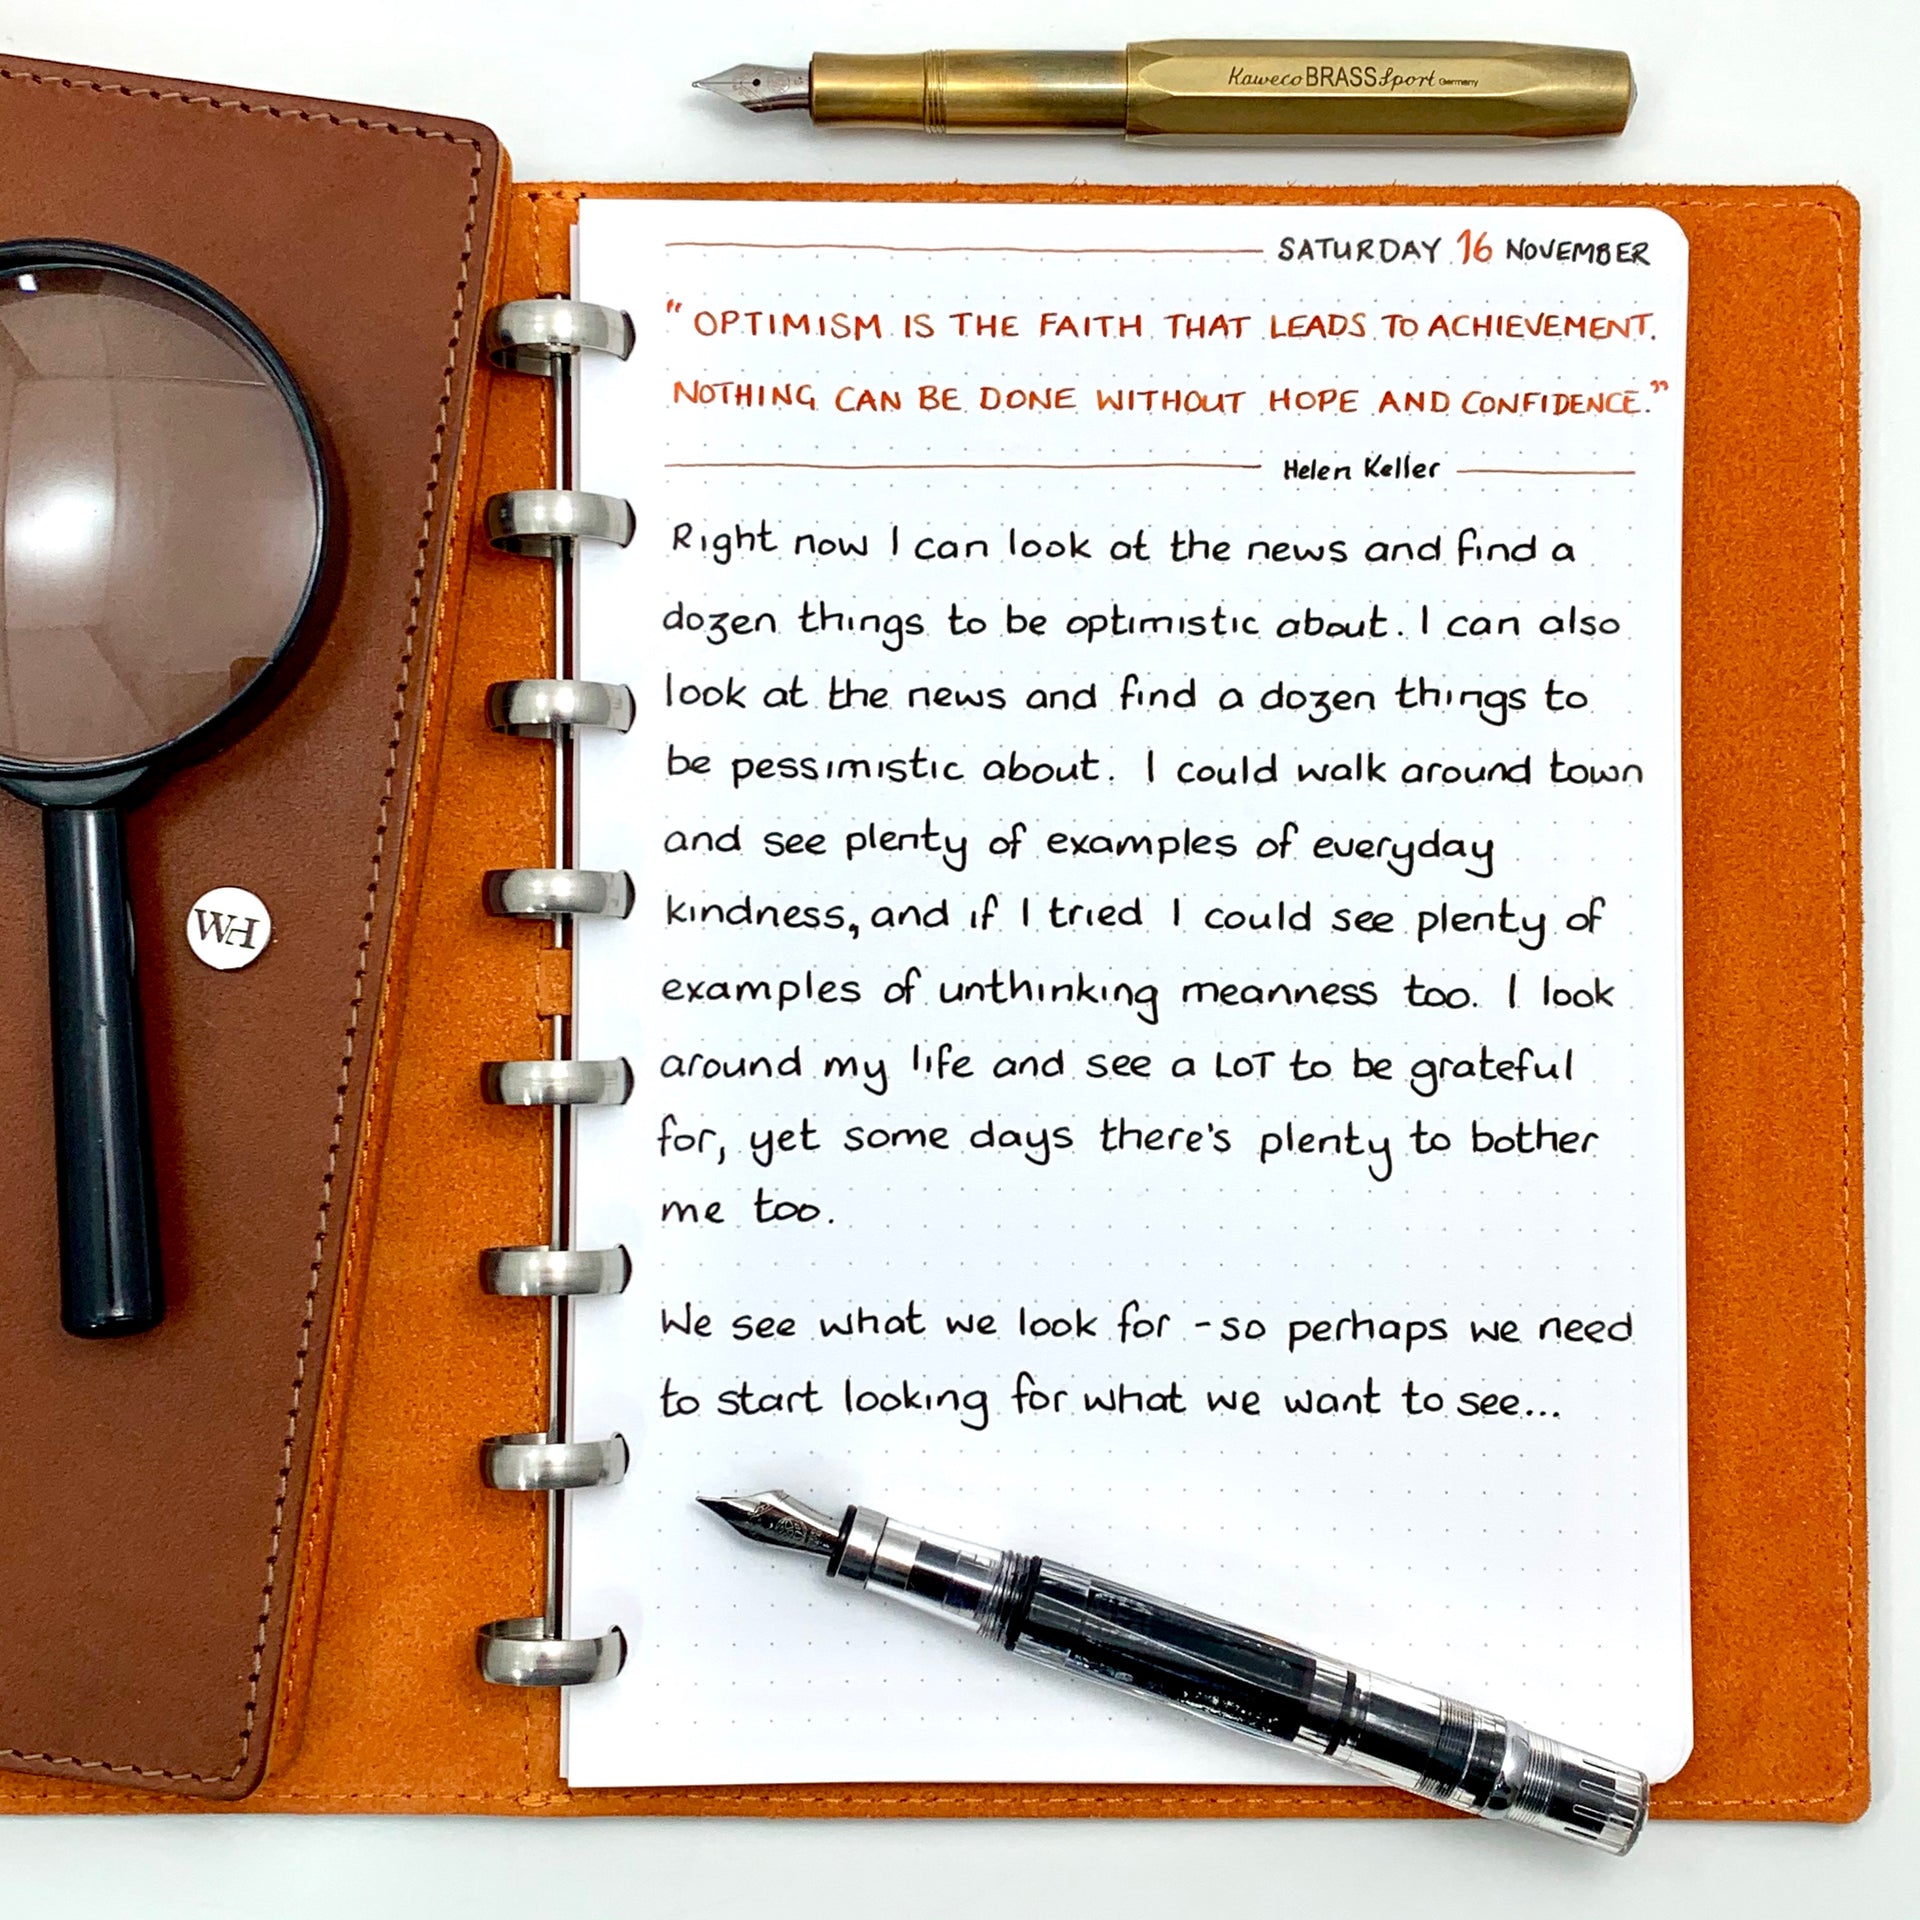 Kaweco BRASS Sport Germany
SATURDAY 16 NOVEMBER
"OPTIMISM IS THE FAITH THAT LEADS TO ACHIEVEMENT.
NOTHING CAN BE DONE WITHOUT HOPE AND CONFIDENCE."
Helen Keller
Right now I can look at the news and find a
dozen things to be optimistic about. I can also
look at the news and find a dozen things to
be pessimistic about. I could walk around town
and see plenty of examples of everyday
kindness, and if I tried I could see plenty of
examples of unthinking meanness too. I look
around my life and see a LOT to be grateful
for, yet some days there's plenty to bother
me too.
We see what we look for - so perhaps we need
to start looking for what we want to see...
WH